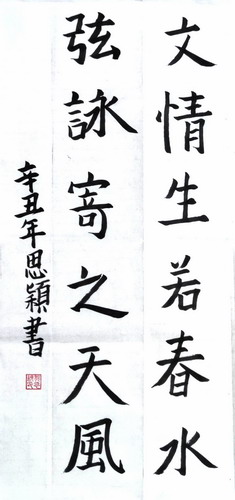 文情生若春水
弦詠寄之天風
辛丑年思穎書